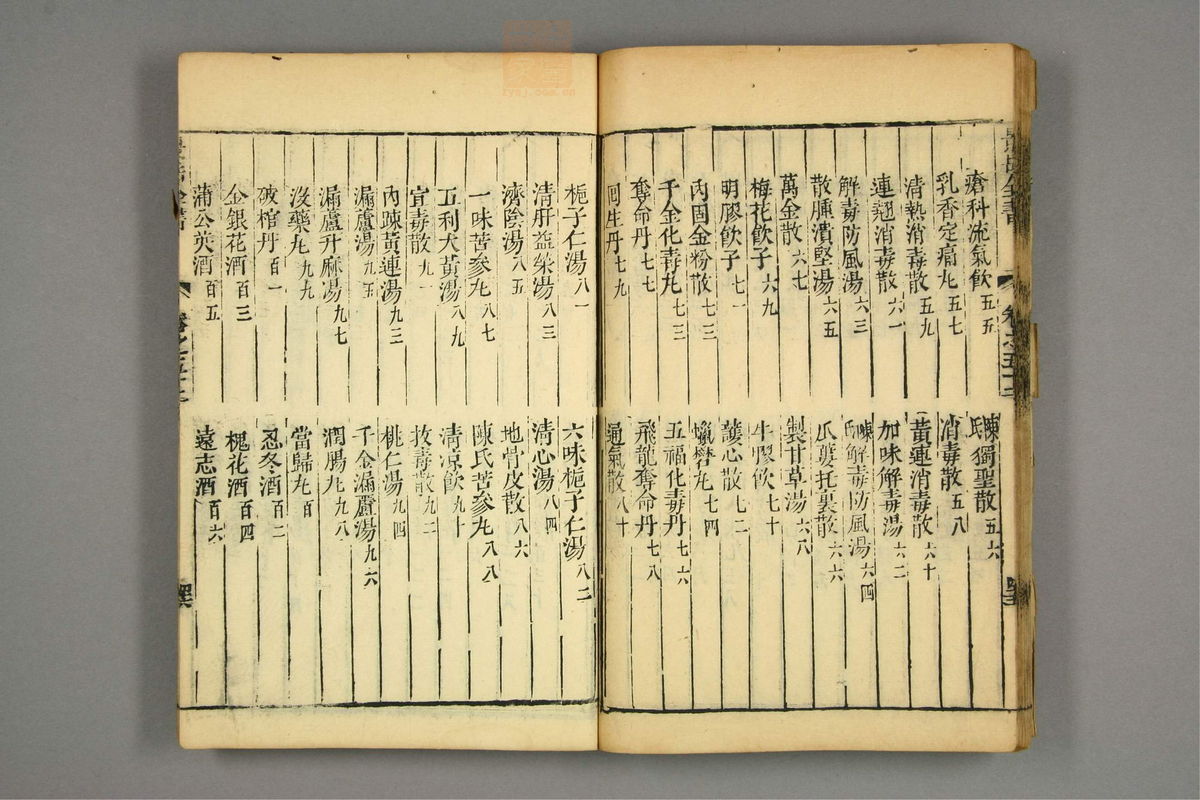 景岳全書
瘡科流氣飲五五　陳氏獨聖散五六
乳香定痛丸五七　消毒散五八
清熱消毒散五九　黃連消毒散六十
連翹消毒散六一　加味解毒湯六二
解毒防風湯六三　陳氏解毒防風湯六四
散腫潰堅湯六五　瓜蔞托裏散六六
萬金散六七　製甘草湯六八
梅花飮子六九　牛膠飮七十
明膠飮子七一　護心散七二
內固金粉散七三　蠟礬丸七四
千金化毒丸七三　五福化毒丹七六
奪命丹七七　飛龍奪命丹七八
回生丹七九　通氣散八十
梔子仁湯八一　六味梔子仁湯八二
清肝益榮湯八三　清心湯八四
濟陰湯八五　地骨皮散八六
一味苦參丸八七　陳氏苦參丸八八
五利大黃湯八九　清凉飮九十
宣毒散九一　拔毒散九二
內疎黃連湯九三　桃仁湯九四
漏蘆湯九五　千金漏蘆湯九六
漏蘆升麻湯九七　潤腸丸九八
沒藥丸九九　當歸丸百
破棺丹百一　忍冬酒百二
金銀花酒百三　槐花酒百四
蒲公英酒百五　遠志酒百六